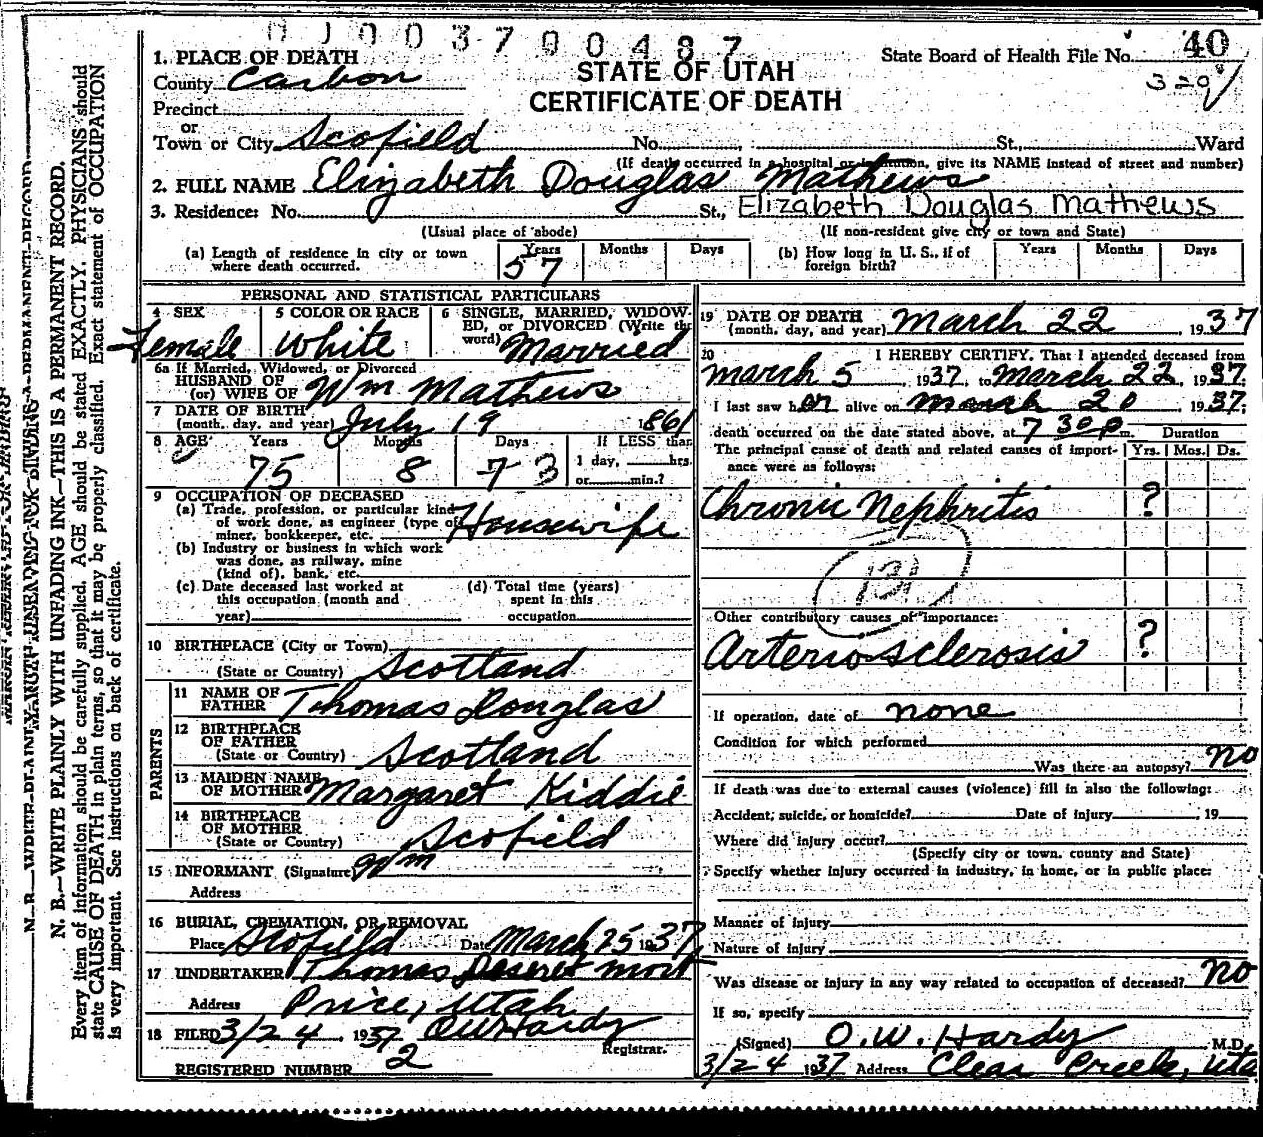 0 1 0 0 3 7 0 0 4 8 7
State Board of Health File No. 40
3209
1. PLACE OF DEATH
County Carbon
STATE OF UTAH
CERTIFICATE OF DEATH
Precinct
or
Town or City Scofield No. St., Ward
(If death occurred in a hospital or institution, give its NAME instead of street and number)
2. FULL NAME Elizabeth Douglas Mathews
3. Residence: No. St., Elizabeth Douglas Mathews
(Usual place of abode) (If non-resident give city or town and State)
(a) Length of residence in city or town where death occurred. Years 57 Months Days
(b) How long in U. S., if of foreign birth? Years Months Days
PERSONAL AND STATISTICAL PARTICULARS
4 SEX Female
5 COLOR OR RACE White
6 SINGLE, MARRIED, WIDOWED, or DIVORCED (Write the word) Married
6a If Married, Widowed, or Divorced
HUSBAND OF
(or) WIFE OF Wm Mathews
7 DATE OF BIRTH
(month, day, and year) July 19 1861
8 AGE Years 75 Months 8 Days 7 3 If LESS than 1 day, hrs. or min.?
9 OCCUPATION OF DECEASED
(a) Trade, profession, or particular kind of work done, as engineer (type of miner, bookkeeper, etc. Housewife
(b) Industry or business in which work was done, as railway, mine (kind of), bank, etc.
(c) Date deceased last worked at this occupation (month and year)
(d) Total time (years) spent in this occupation
10 BIRTHPLACE (City or Town)
(State or Country) Scotland
PARENTS
11 NAME OF FATHER Thomas Douglas
12 BIRTHPLACE OF FATHER
(State or Country) Scotland
13 MAIDEN NAME OF MOTHER Margaret Kiddie
14 BIRTHPLACE OF MOTHER
(State or Country) Scofield
15 INFORMANT (Signature) Wm
Address
16 BURIAL, CREMATION, OR REMOVAL
Place Scofield Date March 25 1937
17 UNDERTAKER Thomas Deseret Mort
Address Price, Utah
18 FILED 3/24 1937 O W Hardy
Registrar.
REGISTERED NUMBER 2
19 DATE OF DEATH
(month, day, and year) March 22, 1937
20 I HEREBY CERTIFY, That I attended deceased from
March 5, 1937, to March 22, 1937;
I last saw her alive on March 20, 1937;
death occurred on the date stated above, at 7 30 p m. Duration
The principal cause of death and related causes of importance were as follows: Yrs. Mos. Ds.
Chronic Nephritis ?
131
Other contributory causes of importance:
Arteriosclerosis ?
If operation, date of none
Condition for which performed
Was there an autopsy? no
If death was due to external causes (violence) fill in also the following:
Accident, suicide, or homicide? Date of injury , 19
Where did injury occur?
(Specify city or town, county and State)
Specify whether injury occurred in industry, in home, or in public place:
Manner of injury
Nature of injury
Was disease or injury in any way related to occupation of deceased? no
If so, specify
(Signed) O. W. Hardy M.D.
3/24 1937 Address Clear Creek, Uta
N. B.—WRITE PLAINLY WITH UNFADING INK—THIS IS A PERMANENT RECORD.
Every item of information should be carefully supplied. AGE should be stated EXACTLY. PHYSICIANS should
state CAUSE OF DEATH in plain terms, so that it may be properly classified. Exact statement of OCCUPATION
is very important. See instructions on back of certificate.